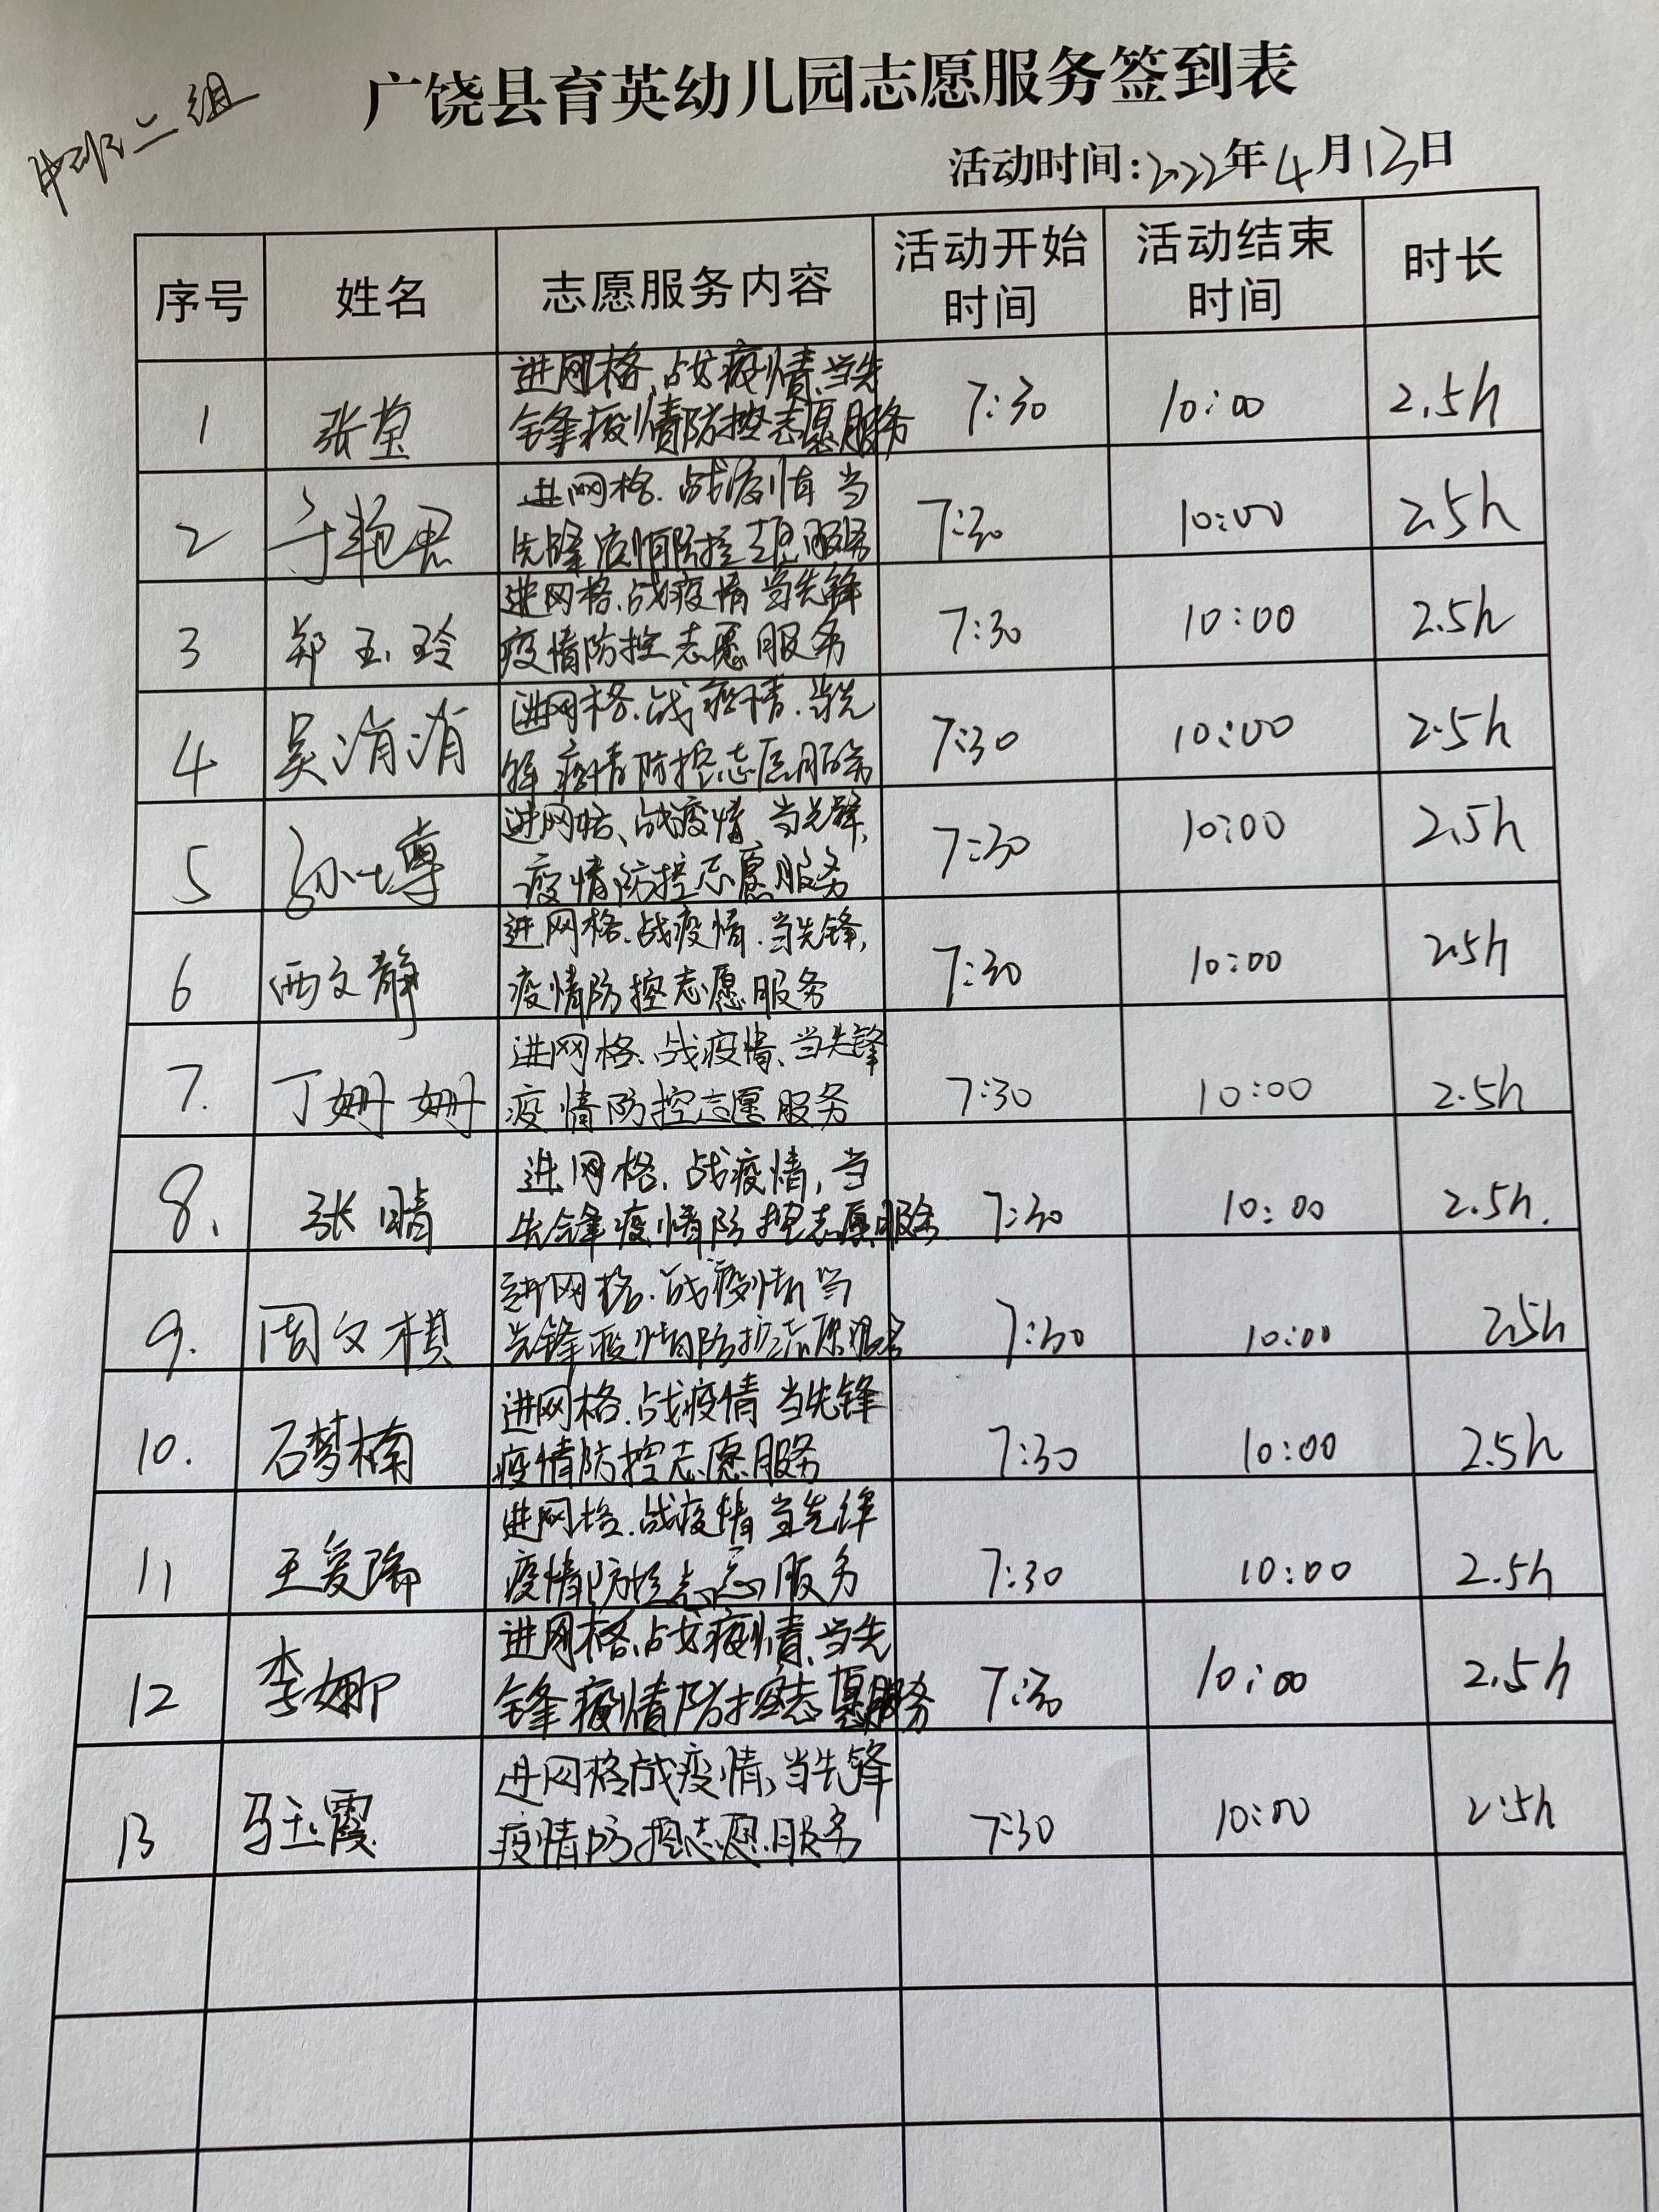 中班二组
广饶县育英幼儿园志愿服务签到表
活动时间:2022年4月13日
序号 姓名 志愿服务内容 活动开始时间 活动结束时间 时长
1 张莹 进网格、战疫情、当先 7:30 10:00 2.5h
锋疫情防控志愿服务
2 于艳君 进网格.战疫情当 7:30 10:00 2.5h
先锋疫情防控志愿服务
3 郑玉玲 进网格.战疫情当先锋 7:30 10:00 2.5h
疫情防控志愿服务
4 吴涓涓 进网格.战疫情.当先 7:30 10:00 2.5h
锋疫情防控志愿服务
5 孙博 进网格、战疫情、当先锋, 7:30 10:00 2.5h
疫情防控志愿服务
6 西文静 进网格.战疫情.当先锋, 7:30 10:00 2.5h
疫情防控志愿服务
7. 丁姗姗 进网格.战疫情、当先锋 7:30 10:00 2.5h
疫情防控志愿服务
8. 张晴 进网格.战疫情,当 7:30 10:00 2.5h.
先锋疫情防控志愿服务
9. 周文棋 进网格.战疫情当 7:30 10:00 2.5h
先锋疫情防控志愿服务
10. 石梦楠 进网格.战疫情当先锋 7:30 10:00 2.5h
疫情防控志愿服务
11 王爱 进网格.战疫情当先锋 7:30 10:00 2.5h
疫情防控志愿服务
12 李娜 进网格、战疫情、当先 7:30 10:00 2.5h
锋疫情防控志愿服务
13 马玉霞 进网格战疫情,当先锋 7:30 10:00 2.5h
疫情防控志愿服务